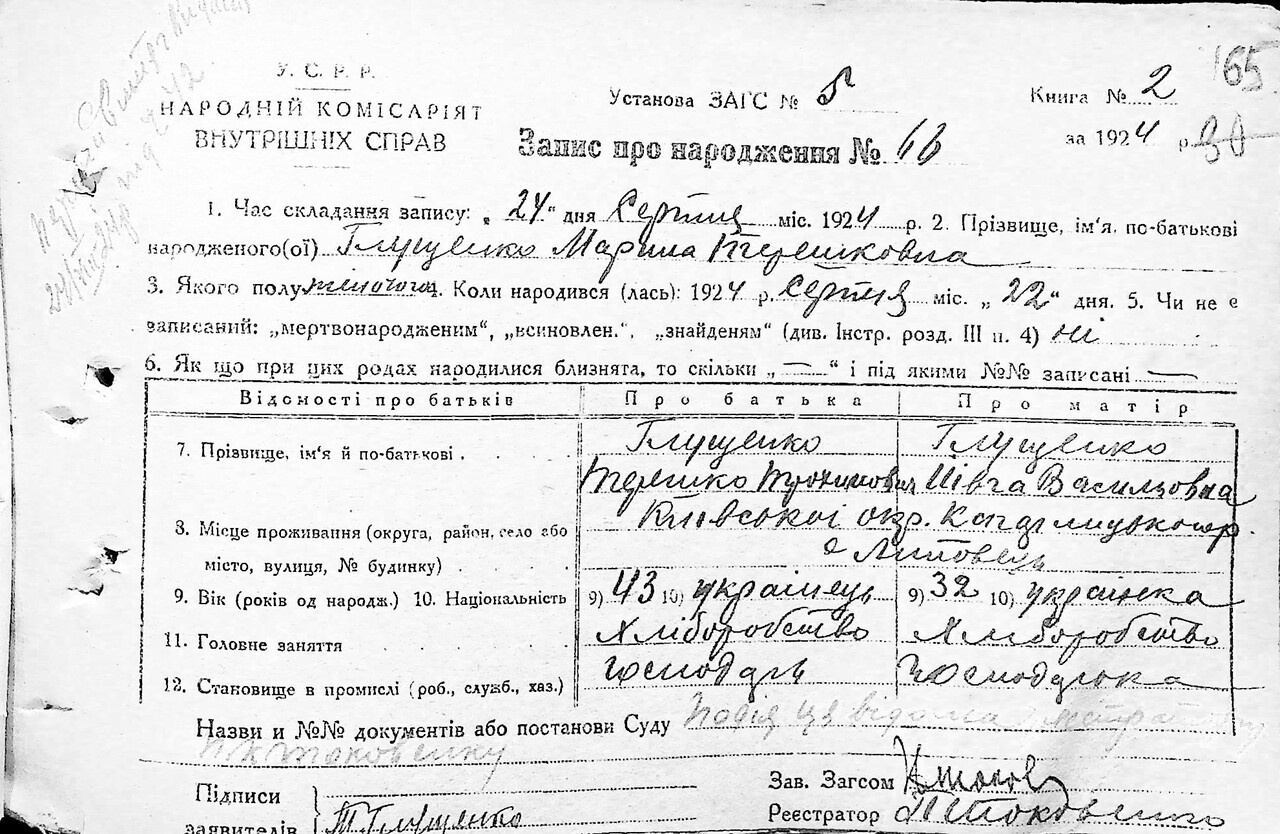 У. С. Р. Р.
НАРОДНІЙ КОМІСАРІЯТ
ВНУТРІШНІХ СПРАВ
Установа ЗАГС № 5
Книга № 2
165
за 1924 р. 30
Запис про народження № 66
1. Час складання запису: „24" дня Серпня міс. 1924 р. 2. Прізвище, ім'я, по-батькові
народженого(ої) Глущенко Марина Терешковна
3. Якого полу жіночого. Коли народився (лась): 1924 р. Серпня міс. „22" дня. 5. Чи не є
записаний: „мертвонародженим", „всиновлен.", „знайденям" (див. Інстр. розд. III п. 4) ні
6. Як що при цих родах народилися близнята, то скільки „—" і під якими №№ записані —
Відомості про батьків Про батька Про матір
7. Прізвище, ім'я й по-батькові . Глущенко Глущенко
Терешко Трохимович Півга Васильовна
8. Місце проживання (округа, район, село або Київської окр. Кагарлицького р.
місто, вулиця, № будинку) . с Липовець
9. Вік (років од народж.) 10. Національність 9) 43 10) українець 9) 32 10) українка
11. Головне заняття Хліборобство Хліборобство
12. Становище в промислі (роб., служб., хаз.) господарь господарка
Назви и №№ документів або постанови Суду Подія ця відома
Підписи
заявителів Т Глущенко
Зав. Загсом
Реєстратор